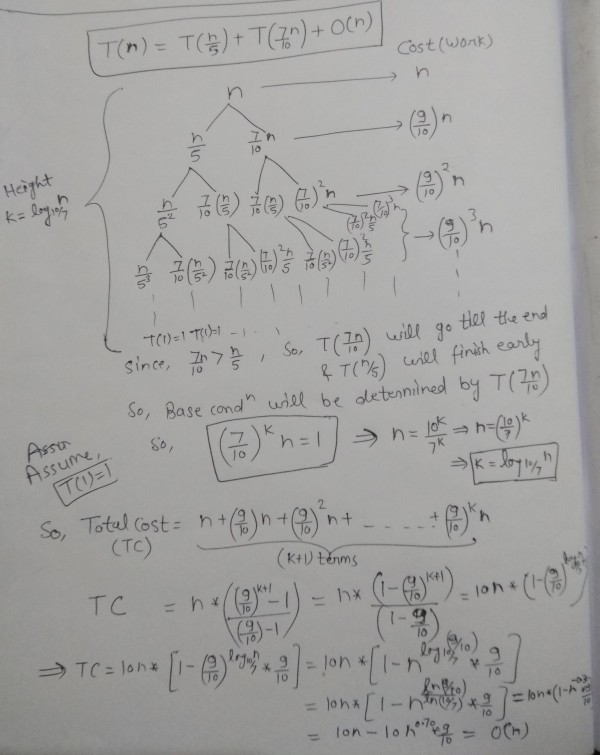 T(n) = T(n/5) + T(7n/10) + O(n)
Cost (work)
n → n
n/5 7/10 n → (9/10)n
n/5² 7/10(n/5) 7/10(n/5) (7/10)²n → (9/10)²n
Height
K = log10/7 n
(7/10)²n/5 (7/10)³n
n/5³ 7/10(n/5²) 7/10(n/5²) (7/10)²n/5 7/10(n/5²) (7/10)²n/5 } → (9/10)³n
T(1)=1 T(1)=1 - - -
since, 7n/10 > n/5, So, T(7n/10) will go till the end
& T(n/5) will finish early
So, Base condⁿ will be determined by T(7n/10)
Assu
Assume,
T(1)=1
so, (7/10)^k n = 1 ⇒ n = 10^k/7^k ⇒ n = (10/7)^k
⇒ K = log10/7 n
So, Total cost = n + (9/10)n + (9/10)²n + - - - - - - + (9/10)^k n
(TC)
(k+1) terms
TC = n * (((9/10)^(k+1) - 1)/((9/10) - 1)) = n * ((1 - (9/10)^(k+1))/(1 - 9/10)) = 10n * (1 - (9/10)
⇒ TC = 10n * [1 - (9/10)^(log10/7 n) * 9/10] = 10n * [1 - n^(log10/7 (9/10)) * 9/10]
= 10n * [1 - n^(ln(9/10)/ln(10/7)) * 9/10] = 10n * (1 - n
= 10n - 10n^0.70 * 9/10 = O(n)